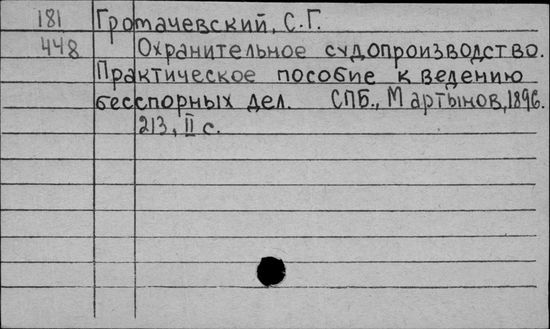 181 Громачевский, С.Г.
448 Охранительное судопроизводство.
Практическое пособие к ведению
бесспорных дел. СПБ., Мартынов, 1896.
213, II с.